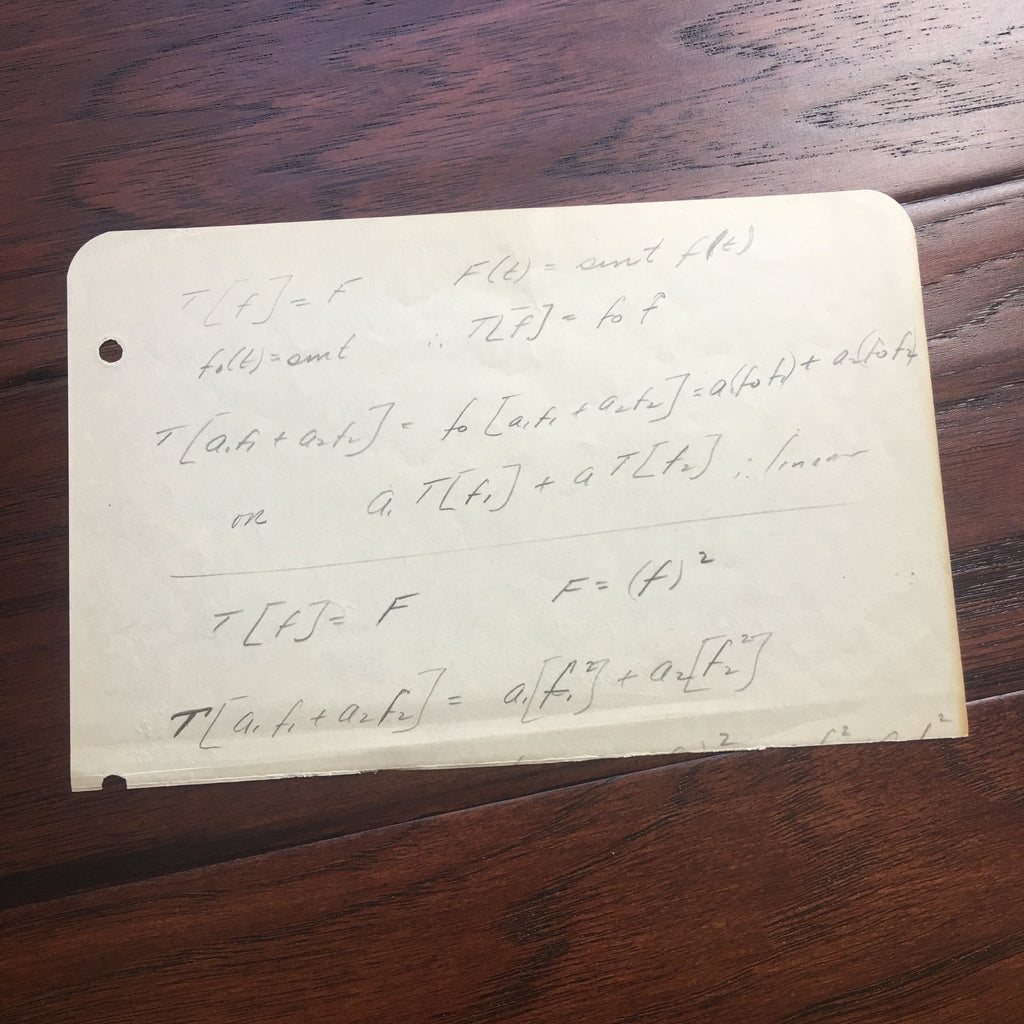 T[f] = F F(t) = sint f(t)
f₀(t) = sint ∴ T[f] = f₀ f
T[a₁f₁ + a₂f₂] = f₀ [a₁f₁ + a₂f₂] = a(f₀f₁) + a₂(f₀f₂
OR a₁ T[f₁] + a T[f₂] ∴ linear
T[f] = F F = (f)²
T[a₁f₁ + a₂f₂] = a₁[f₁²] + a₂[f₂²]